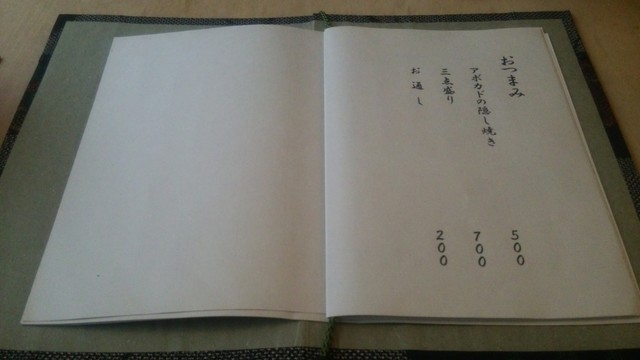 おつまみ
アボカドの隠し焼き
三点盛り
お通し
500
700
200